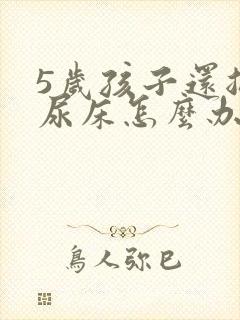 5歲孩子還
尿床怎麼办
鳥人弥巳